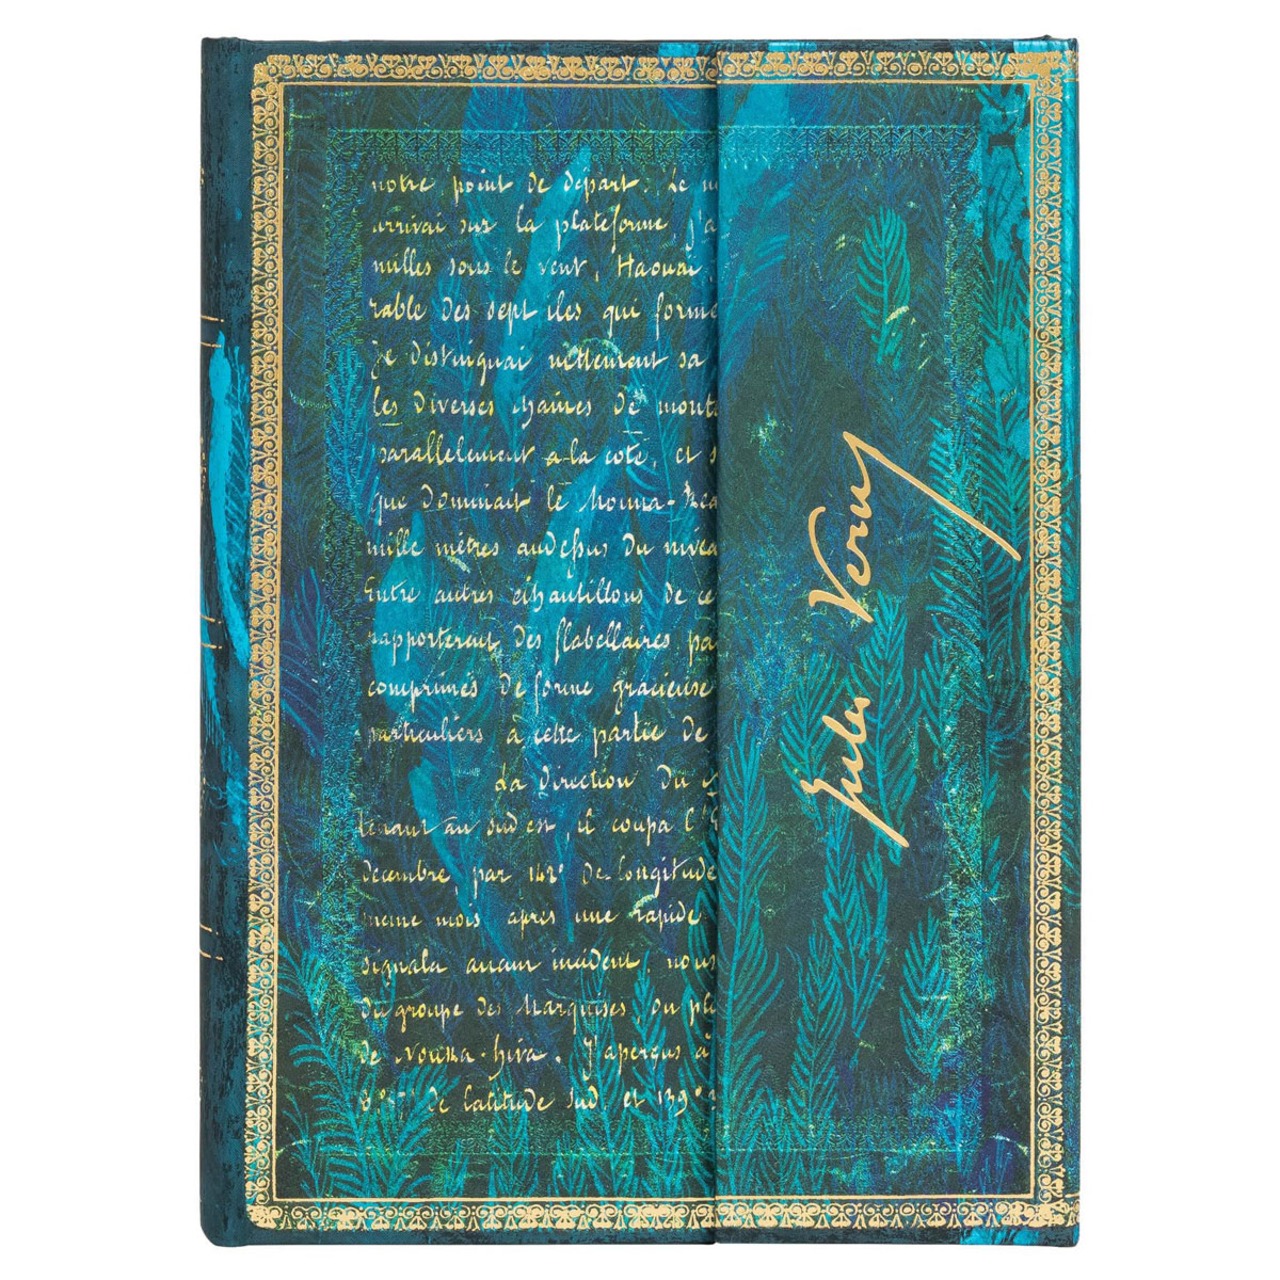 notre point de départ. Le
arrivai sur la plateforme, j'a
milles sous le vent, Haouaï,
rable des sept iles qui forme
Je distinguai nettement sa
les diverses chaines de mont
parallelement a la cote, et s
que dominait le Mouna-
mille mètres audessus du nivea
Entre autres échantillons de ce
rapporterent des flabellaires pa
comprimés de forme gracieuse
particuliers à cette partie de
La direction du
tenant au sud est, il coupa l'
décembre, par 142° de longitude
meme mois apres une rapide
signala aucun incident. nous
du groupe des Marquises,
de Nouka-hiva. J'aperçus à
de latitude sud, et 139°
Jules Verne